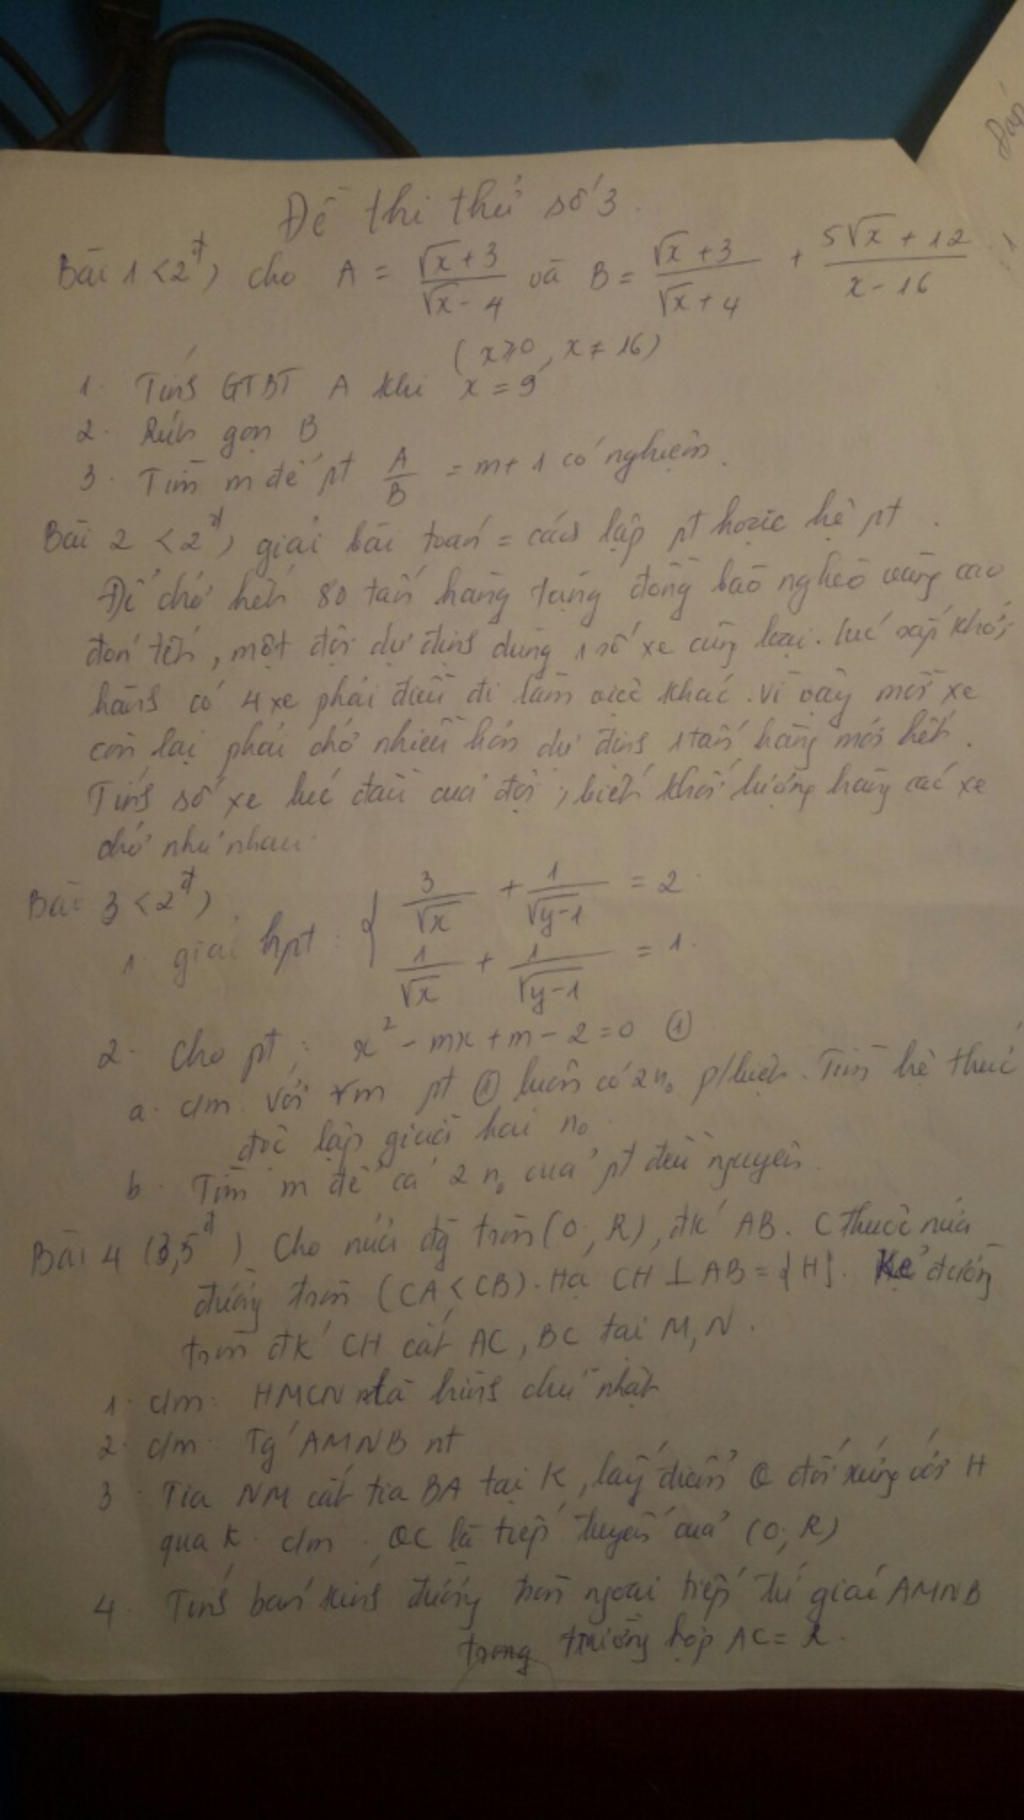 Đề thi thử số 3.
Bài 1 <2đ) cho A = \frac{\sqrt{x}+3}{\sqrt{x}-4} và B = \frac{\sqrt{x}+3}{\sqrt{x}+4} + \frac{5\sqrt{x}+12}{x-16}
(x≥0, x≠16)
1. Tính GTBT A khi x = 9
2. Rút gọn B
3. Tìm m để pt \frac{A}{B} = m+1 có nghiệm.
Bài 2 <2đ) giải bài toán = cách lập pt hoặc hệ pt.
Để chở hết 80 tấn hàng tặng đồng bào nghèo vùng cao
đón tết, một đội dự định dùng 1 số xe cùng loại. lúc sắp khởi
hành có 4 xe phải điều đi làm việc khác. Vì vậy mỗi xe
còn lại phải chở nhiều hơn dự định 1 tấn hàng mới hết.
Tính số xe lúc đầu của đội, biết khối lượng hàng các xe
chở như nhau.
Bài 3 <2đ)
1. giải hpt: { \frac{3}{\sqrt{x}} + \frac{1}{\sqrt{y-1}} = 2
\frac{1}{\sqrt{x}} + \frac{1}{\sqrt{y-1}} = 1.
2. Cho pt: x² - mx + m - 2 = 0 ①
a. c/m. Với ∀m pt ① luôn có 2 n₀ p/biệt. Tìm hệ thức
độc lập giữa hai n₀
b. Tìm m để cả 2 n₀ của pt đều nguyên.
Bài 4 (3,5đ) Cho nửa đg tròn (O; R), đk AB. C thuộc nửa
đường tròn (CA < CB). Hạ CH ⊥ AB = {H}. Kẻ đường
tròn đk CH cắt AC, BC tại M, N.
1. c/m. HMCN là hình chữ nhật
2. c/m. Tg AMNB nt
3. Tia NM cắt tia BA tại K, lấy điểm Q đối xứng với H
qua K. c/m. QC là tiếp tuyến của (O; R)
4. Tính bán kính đường tròn ngoại tiếp tứ giác AMNB
trong trường hợp AC = R.